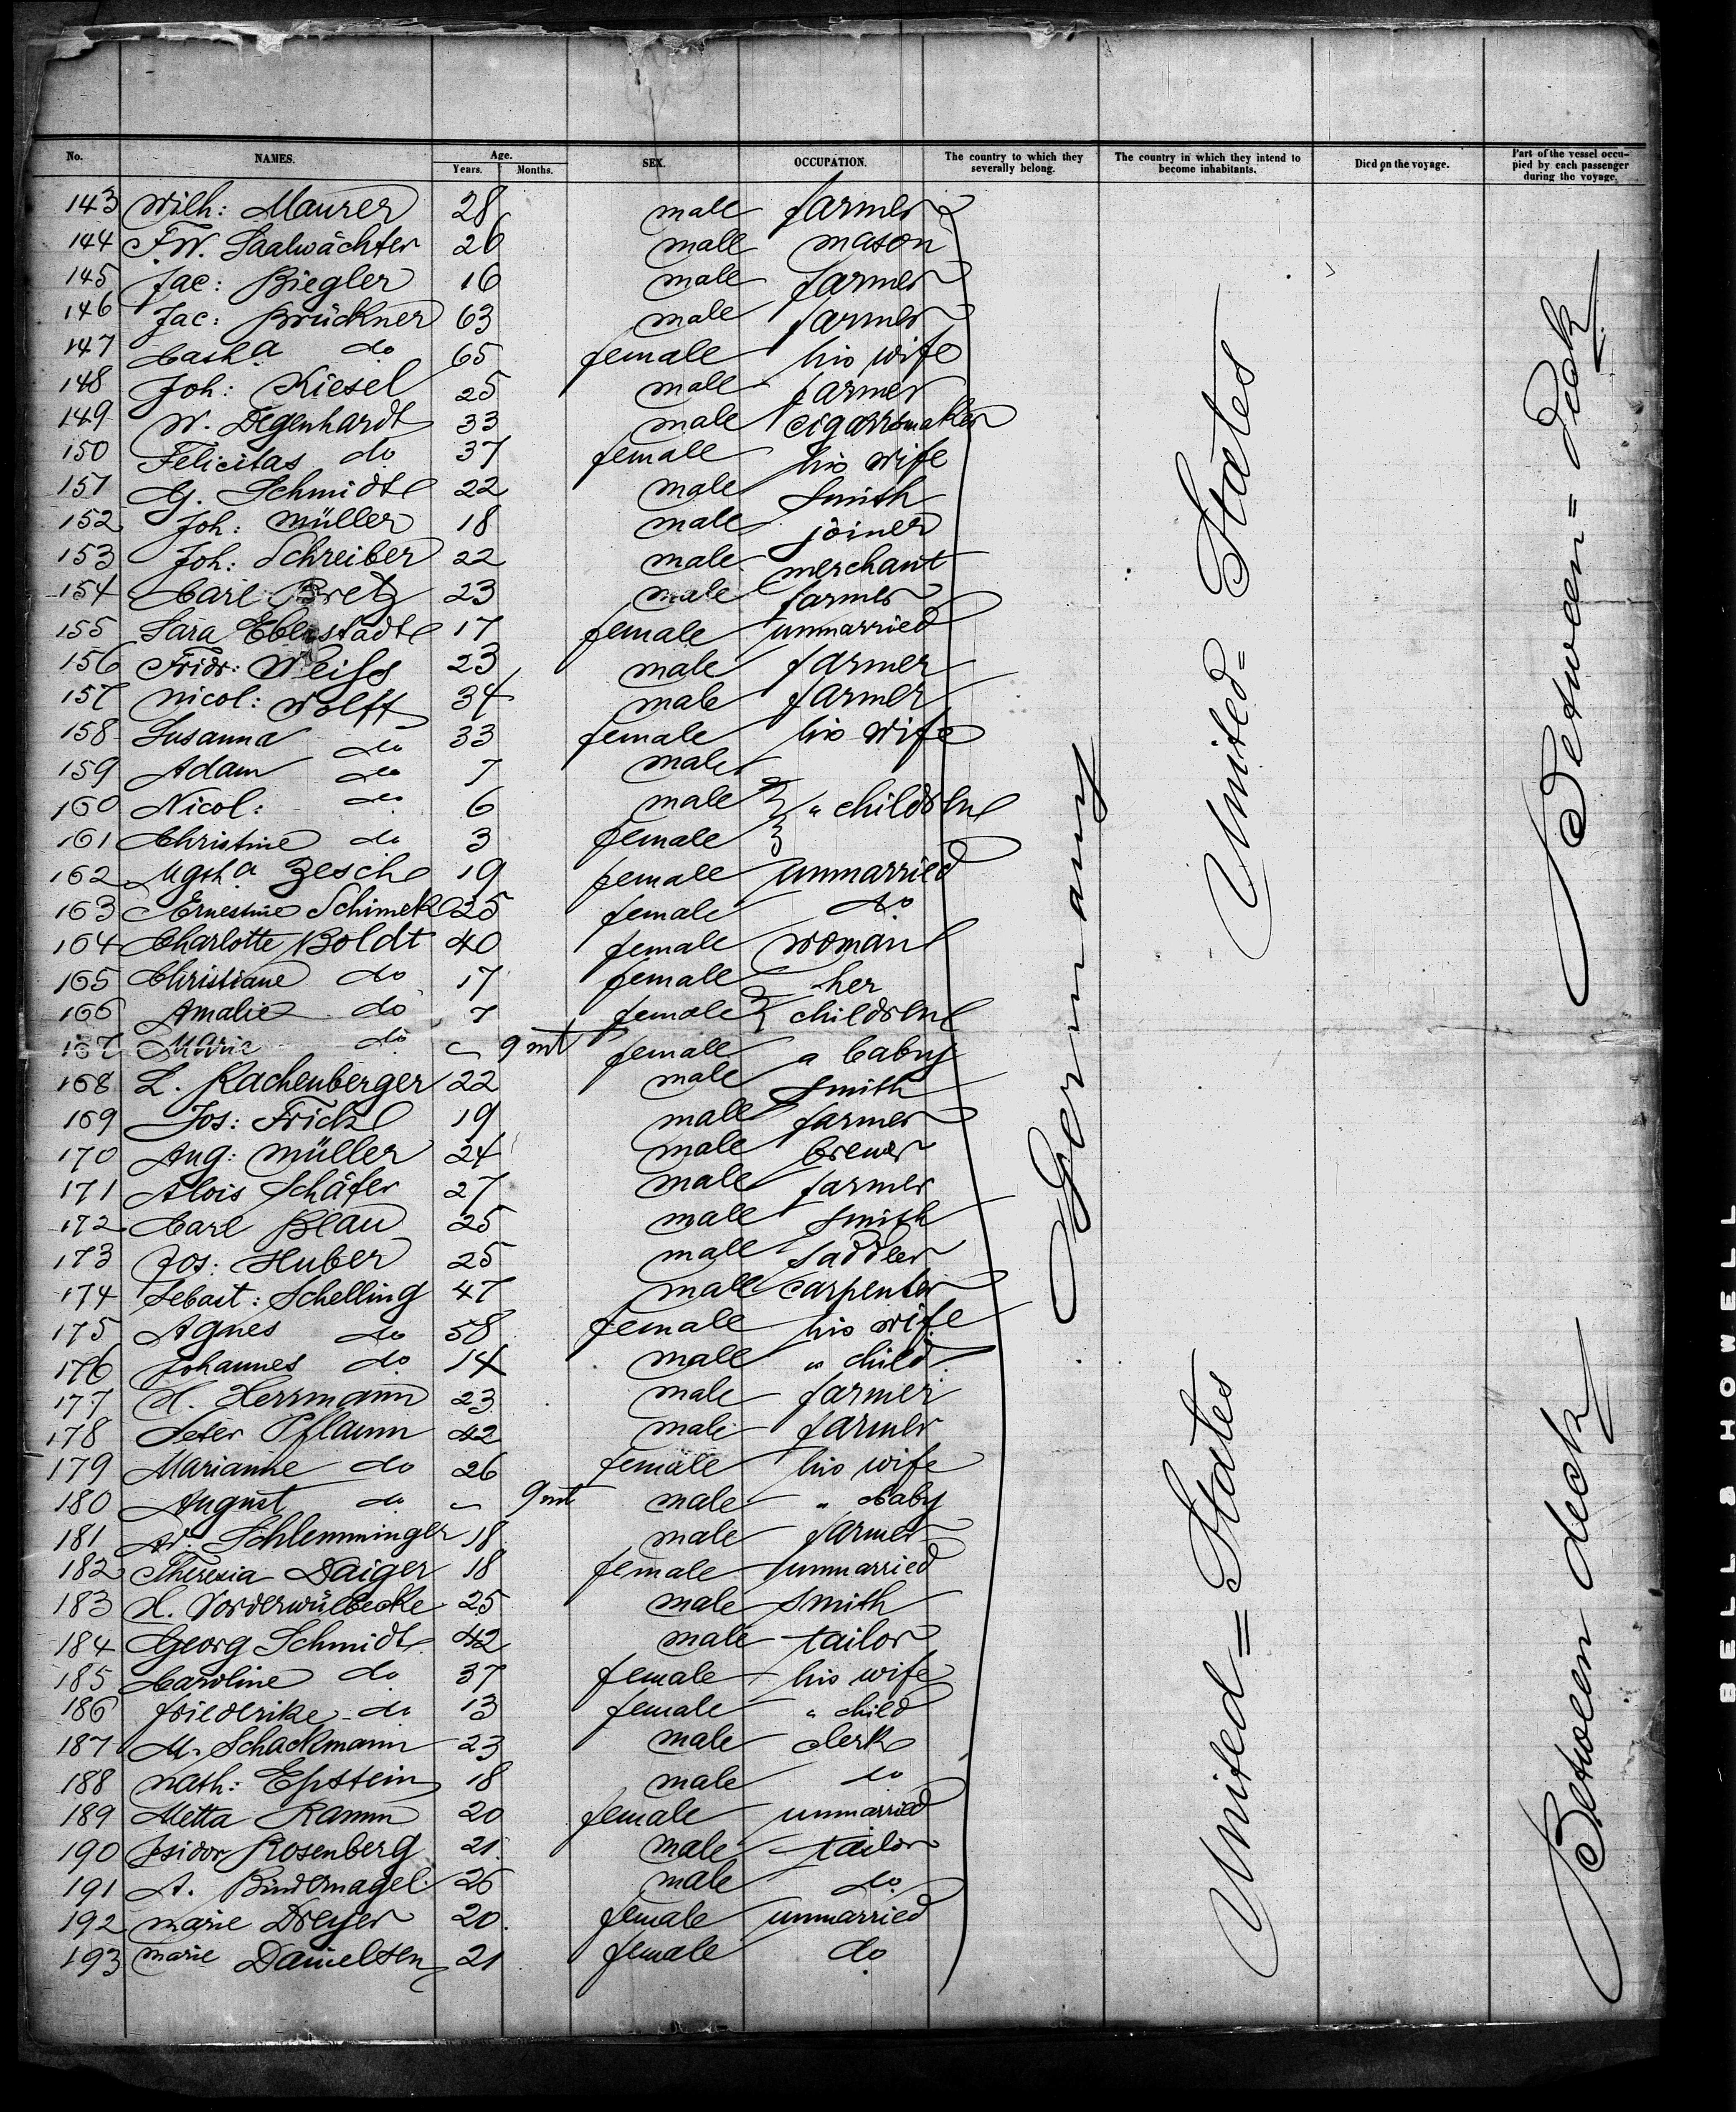 No. NAMES. Age. Years. Months. SEX. OCCUPATION. The country to which they severally belong. The country in which they intend to become inhabitants. Died on the voyage. Part of the vessel occupied by each passenger during the voyage.
143 Wilh: Maurer 28 male farmer
144 F.W. Saalwächter 26 male mason
145 Jac: Biegler 16 male farmer
146 Jac: Brückner 63 male farmer
147 Cath.a do 65 female his wife
148 Joh: Kiesel 25 male farmer
149 W. Degenhardt 33 male cigarrmaker
150 Felicitas do 37 female his wife
151 G. Schmidt 22 male smith
152 Joh: Müller 18 male joiner
153 Joh: Schreiber 22 male merchant
154 Carl Bretz 23 male farmer
155 Sara Eberstadt 17 female unmarried
156 Fridr: Weiss 23 male farmer
157 Nicol: Wolff 34 male farmer
158 Susanna do 33 female his wife
159 Adam do 7 male
160 Nicol: do 6 male " children
161 Christine do 3 female
162 Mgth.a Zesch 19 female unmarried
163 Ernestine Schimek 25 female do
164 Charlotte Boldt 40 female woman
165 Christiane do 17 female her
166 Amalie do 7 female children
167 Marie do 9 mt female a baby
168 L. Rachenberger 22 male smith
169 Jos: Frick 19 male farmer
170 Aug: Müller 24 male brewer
171 Alois Schäfer 27 male farmer
172 Carl Blau 25 male smith
173 Jos: Huber 25 male saddler
174 Sebast: Schelling 47 male carpenter
175 Agnes do 58 female his wife
176 Johannes do 14 male " child
177 H. Herrmann 23 male farmer
178 Peter Pflaum 42 male farmer
179 Marianne do 26 female his wife
180 August do 9 mt male " baby
181 Ad: Schlemminger 18 male farmer
182 Theresia Daiger 18 female unmarried
183 H. Vorderwülbecke 25 male smith
184 Georg Schmidt 42 male tailor
185 Caroline do 37 female his wife
186 Friederike do 13 female " child
187 M. Schackmann 23 male clerk
188 Nath: Epstein 18 male do
189 Metta Ramm 20 female unmarried
190 Isidor Rosenberg 21 male tailor
191 A. Bindernagel 26 male do
192 Marie Dreyer 20 female unmarried
193 Marie Danielsen 21 female do
Germany
United = States
United = States
Between = deck
Between deck
BELL & HOWELL